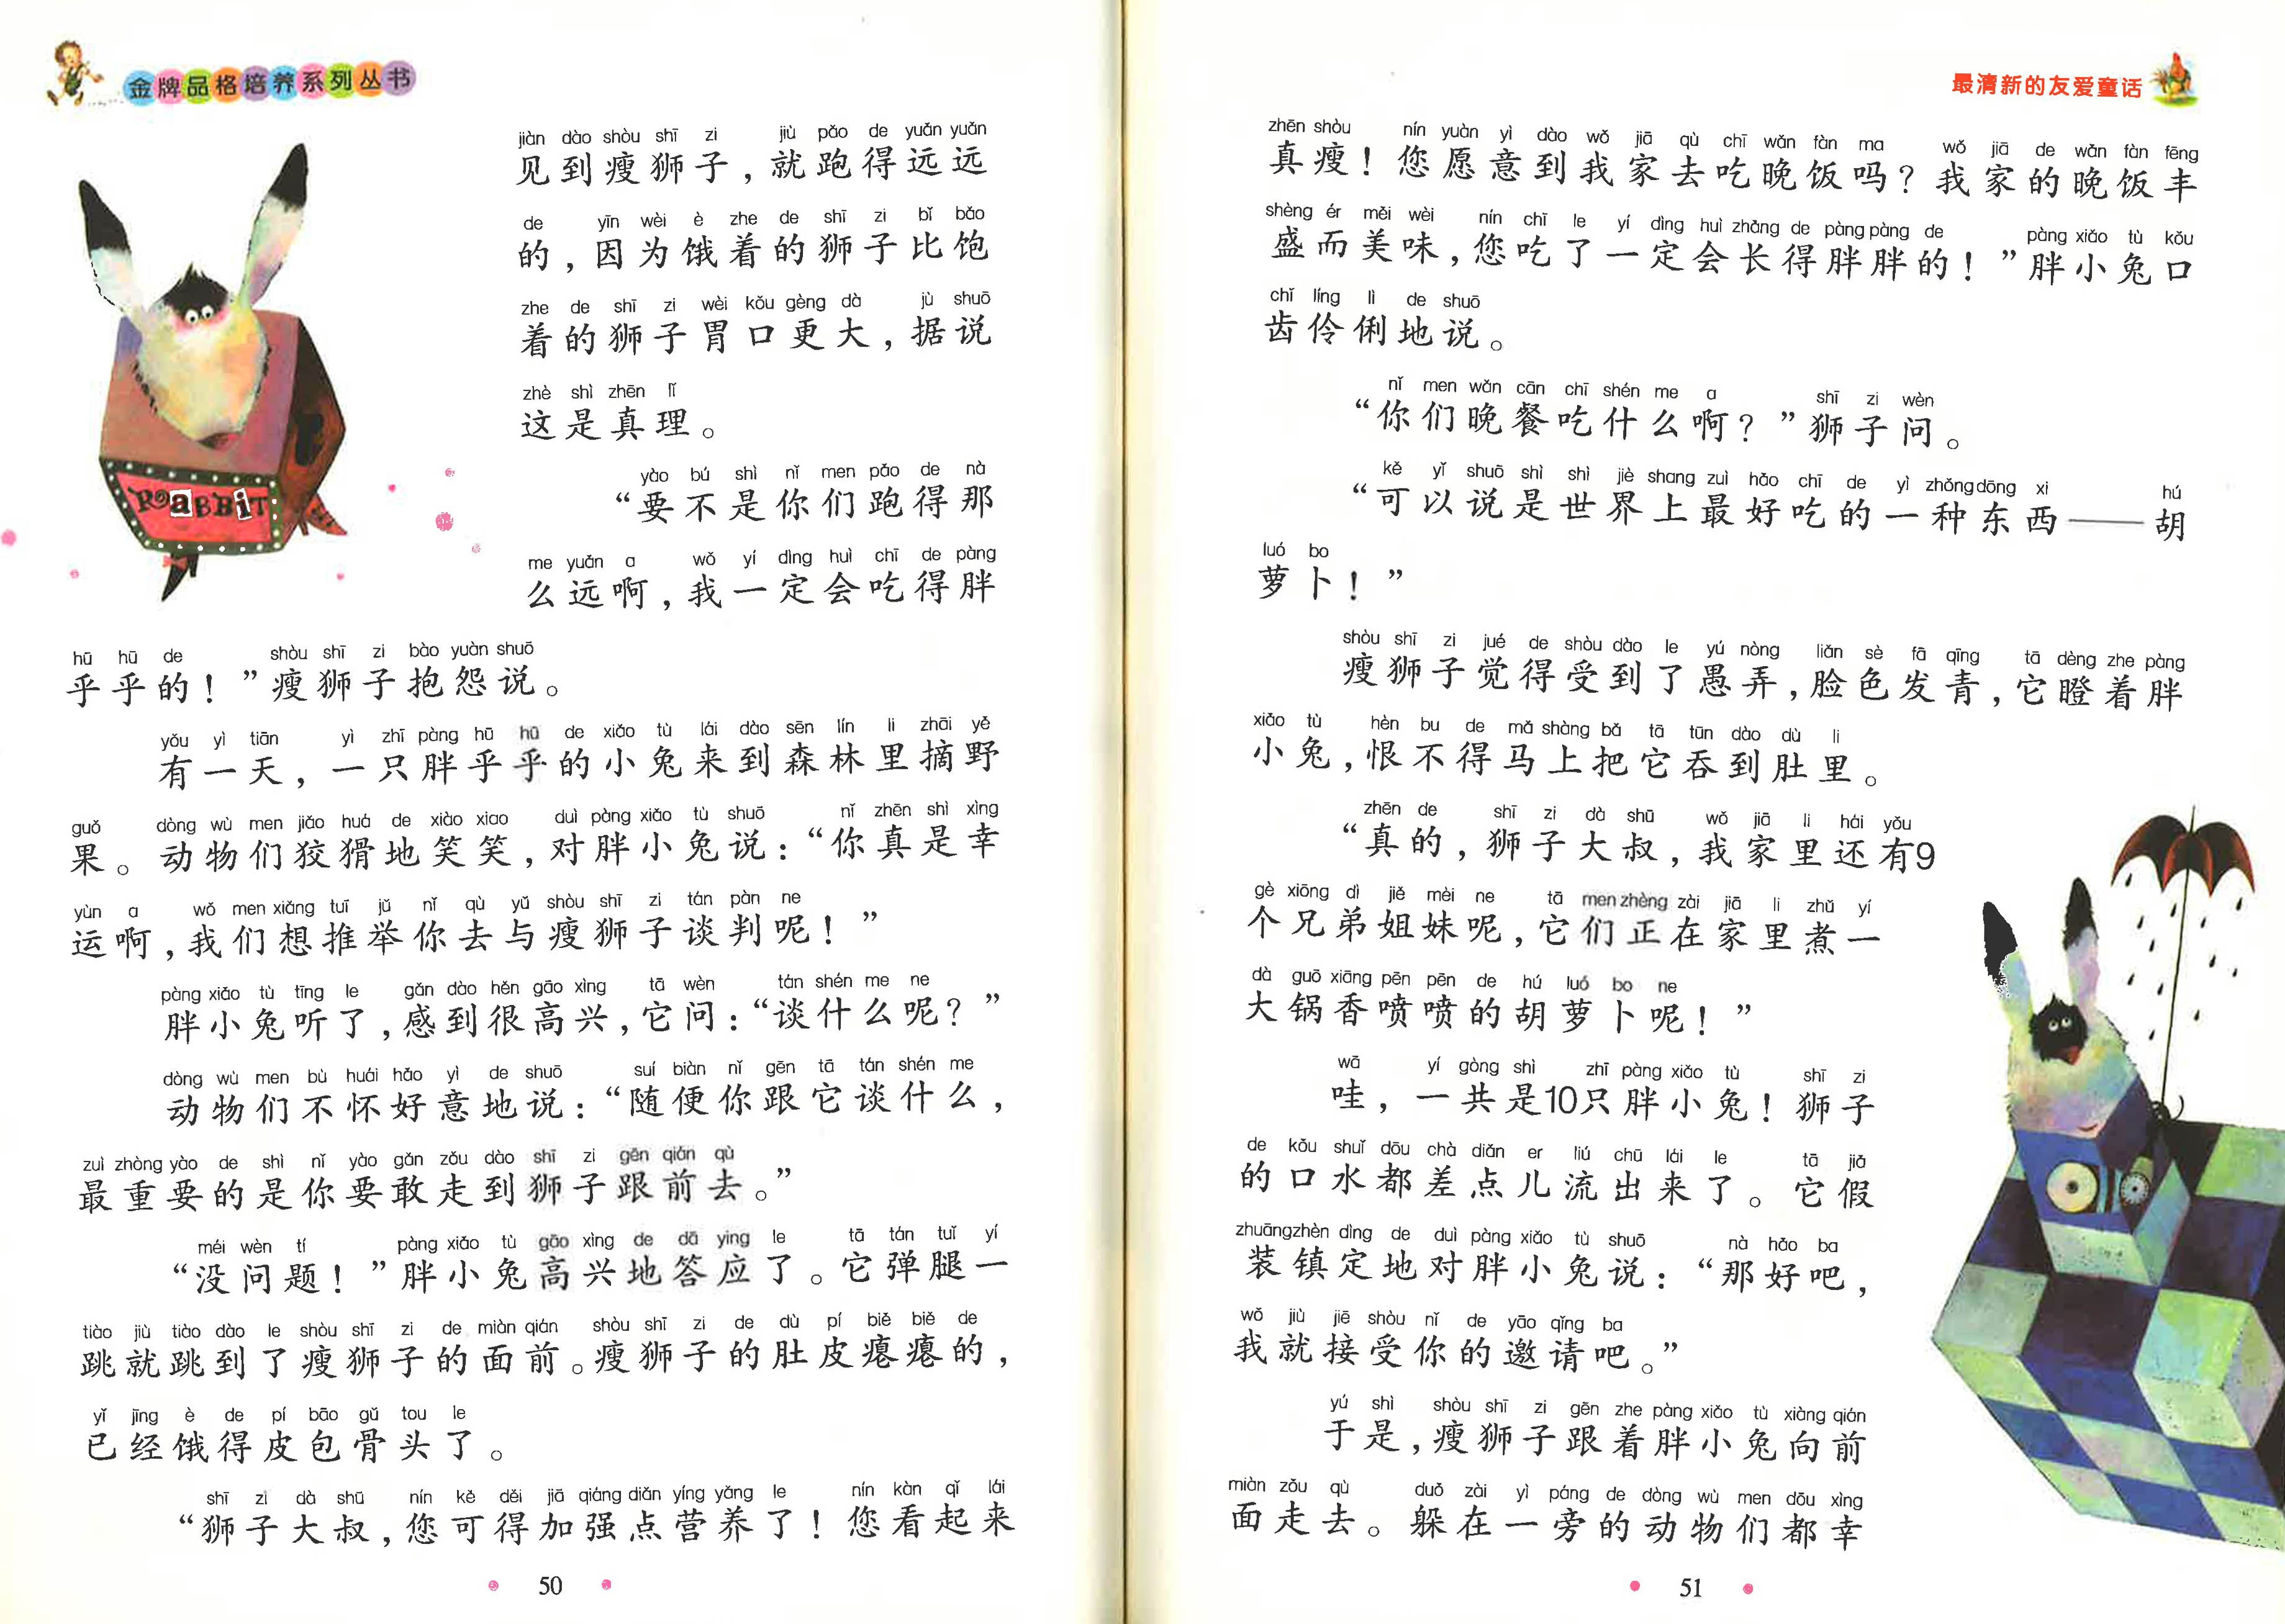 金牌品格培养系列丛书
jiàn dào shòu shī zi jiù pǎo de yuǎn yuǎn
见到瘦狮子，就跑得远远
de yīn wèi è zhe de shī zi bǐ bǎo
的，因为饿着的狮子比饱
zhe de shī zi wèi kǒu gèng dà jù shuō
着的狮子胃口更大，据说
zhè shì zhēn lǐ
这是真理。
yào bú shì nǐ men pǎo de nà
“要不是你们跑得那
me yuǎn a wǒ yí dìng huì chī de pàng
么远啊，我一定会吃得胖
hū hū de shòu shī zi bào yuàn shuō
乎乎的！”瘦狮子抱怨说。
yǒu yì tiān yì zhī pàng hū hū de xiǎo tù lái dào sēn lín li zhāi yě
有一天，一只胖乎乎的小兔来到森林里摘野
guǒ dòng wù men jiǎo huá de xiào xiao duì pàng xiǎo tù shuō nǐ zhēn shì xìng
果。动物们狡猾地笑笑，对胖小兔说：“你真是幸
yùn a wǒ men xiǎng tuī jǔ nǐ qù yǔ shòu shī zi tán pàn ne
运啊，我们想推举你去与瘦狮子谈判呢！”
pàng xiǎo tù tīng le gǎn dào hěn gāo xìng tā wèn tán shén me ne
胖小兔听了，感到很高兴，它问：“谈什么呢？”
dòng wù men bù huái hǎo yì de shuō suí biàn nǐ gēn tā tán shén me
动物们不怀好意地说：“随便你跟它谈什么，
zuì zhòng yào de shì nǐ yào gǎn zǒu dào shī zi gēn qián qù
最重要的是你要敢走到狮子跟前去。”
méi wèn tí pàng xiǎo tù gāo xìng de dā ying le tā tán tuǐ yí
“没问题！”胖小兔高兴地答应了。它弹腿一
tiào jiù tiào dào le shòu shī zi de miàn qián shòu shī zi de dù pí biě biě de
跳就跳到了瘦狮子的面前。瘦狮子的肚皮瘪瘪的，
yǐ jīng è de pí bāo gǔ tou le
已经饿得皮包骨头了。
shī zi dà shū nín kě děi jiā qiáng diǎn yíng yǎng le nín kàn qǐ lái
“狮子大叔，您可得加强点营养了！您看起来
RaBBiT
50
最清新的友爱童话
zhēn shòu nín yuàn yì dào wǒ jiā qù chī wǎn fàn ma wǒ jiā de wǎn fàn fēng
真瘦！您愿意到我家去吃晚饭吗？我家的晚饭丰
shèng ér měi wèi nín chī le yí dìng huì zhǎng de pàng pàng de pàng xiǎo tù kǒu
盛而美味，您吃了一定会长得胖胖的！”胖小兔口
chǐ líng lì de shuō
齿伶俐地说。
nǐ men wǎn cān chī shén me a shī zi wèn
“你们晚餐吃什么啊？”狮子问。
kě yǐ shuō shì shì jiè shang zuì hǎo chī de yì zhǒng dōng xi hú
“可以说是世界上最好吃的一种东西——胡
luó bo
萝卜！”
shòu shī zi jué de shòu dào le yú nòng liǎn sè fā qīng tā dèng zhe pàng
瘦狮子觉得受到了愚弄，脸色发青，它瞪着胖
xiǎo tù hèn bu de mǎ shàng bǎ tā tūn dào dù li
小兔，恨不得马上把它吞到肚里。
zhēn de shī zi dà shū wǒ jiā li hái yǒu
“真的，狮子大叔，我家里还有9
gè xiōng dì jiě mèi ne tā men zhèng zài jiā li zhǔ yí
个兄弟姐妹呢，它们正在家里煮一
dà guō xiāng pēn pēn de hú luó bo ne
大锅香喷喷的胡萝卜呢！”
wā yí gòng shì zhī pàng xiǎo tù shī zi
哇，一共是10只胖小兔！狮子
de kǒu shuǐ dōu chà diǎn er liú chū lái le tā jiǎ
的口水都差点儿流出来了。它假
zhuāng zhèn dìng de duì pàng xiǎo tù shuō nà hǎo ba
装镇定地对胖小兔说：“那好吧，
wǒ jiù jiē shòu nǐ de yāo qǐng ba
我就接受你的邀请吧。”
yú shì shòu shī zi gēn zhe pàng xiǎo tù xiàng qián
于是，瘦狮子跟着胖小兔向前
miàn zǒu qù duǒ zài yì páng de dòng wù men dōu xìng
面走去。躲在一旁的动物们都幸
51